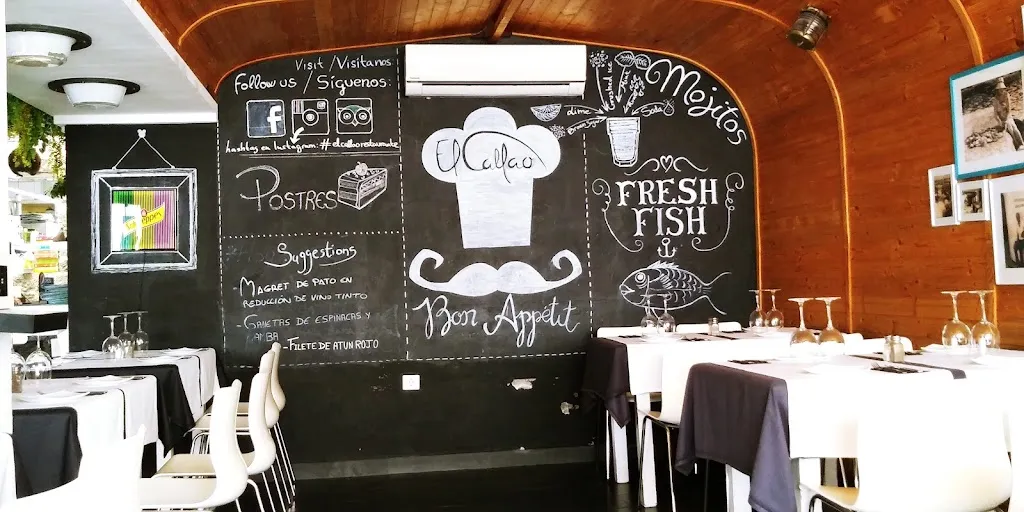 Visit / Visítanos:
Follow us / Síguenos:
f
hashtag en Instagram: #elcallaorestaurante
Postres
Suggestions
- Magret de pato en
reducción de vino tinto
- Galletas de espinacas y
gamba
- Filete de atún rojo
El Callao
Bon Appétit
Mojitos
Crushed ice
lime
Brown sugar
Soda
FRESH
FISH